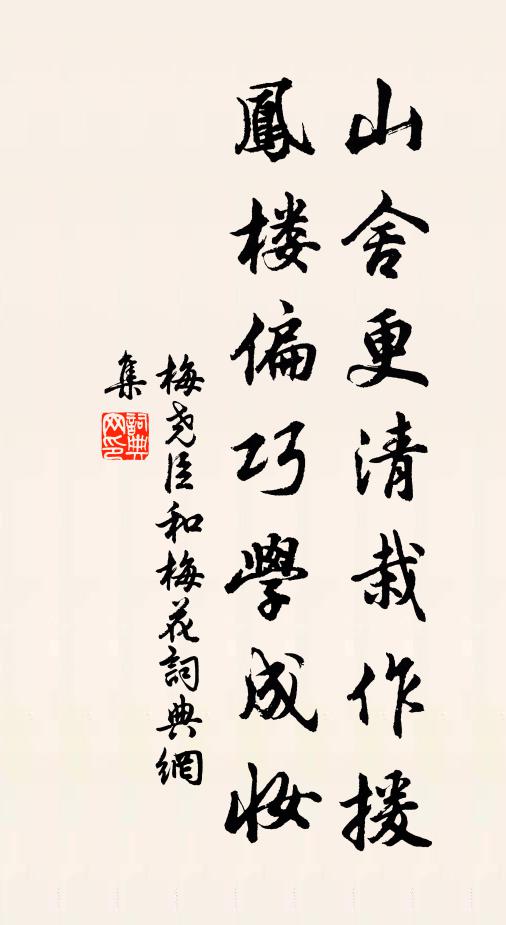 山舍更清栽作援
鳳楼偏巧學成妝
梅尧臣和梅花詞典網
集
詞典网印